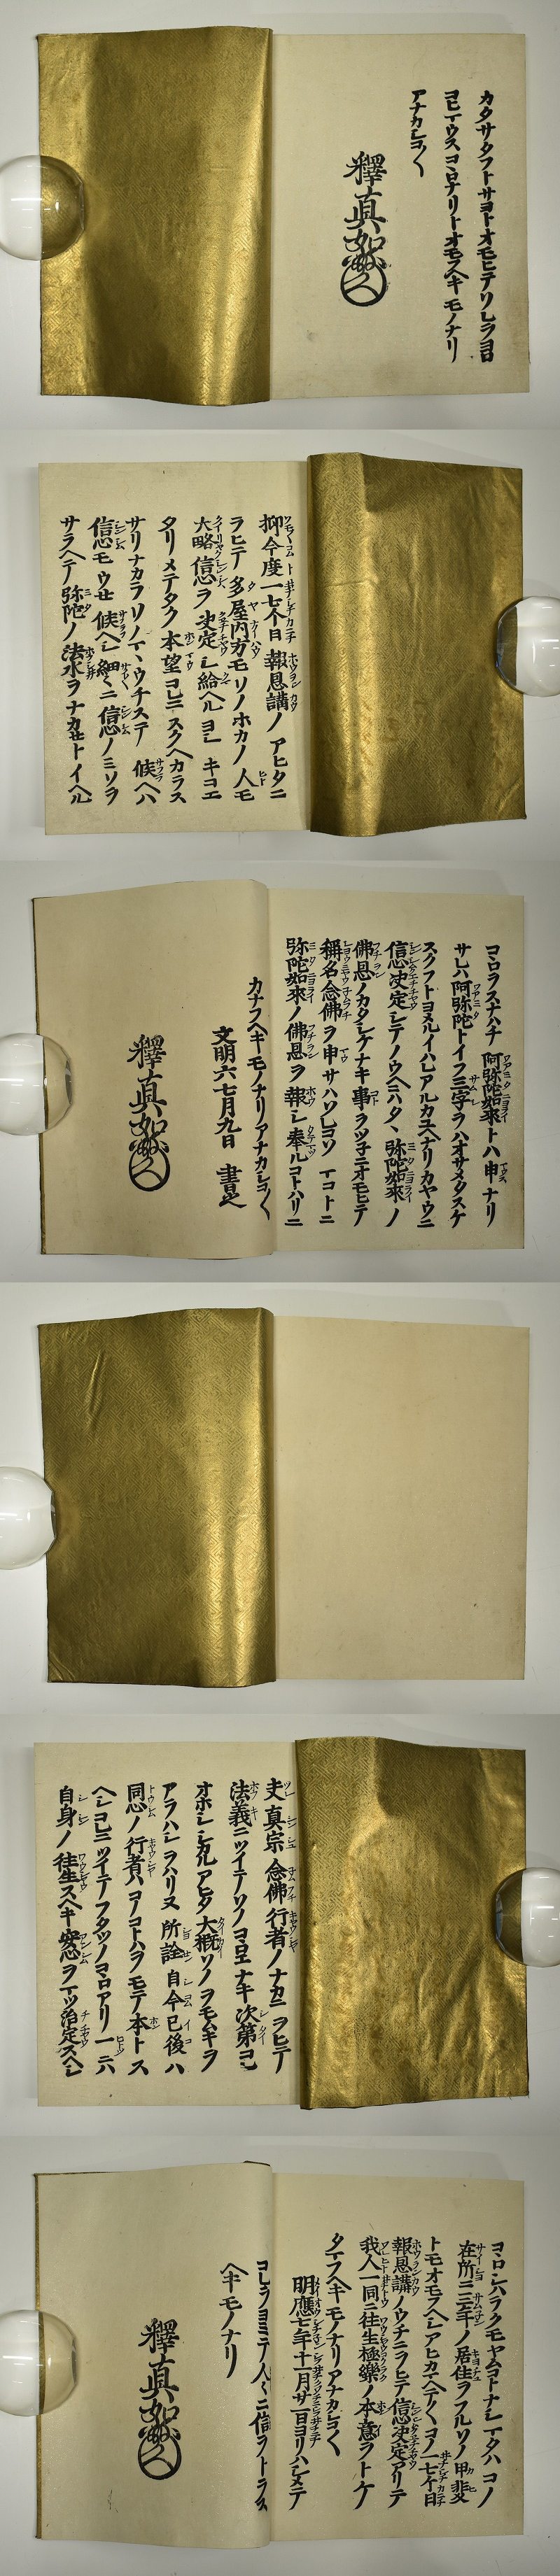 カタサタフトサヨトオモヒテソレヲヨロ
コヒマウスココロナリトオモフヘキモノナリ
アナカシコ〱
釋真如
抑今度一七个日報恩講ノアヒタニ
ヲヒテ多屋内方モソノホカノ人モ
大略信心ヲ決定シ給ヘルヨシキコエ
タリメテタク本望コレニスクヘカラス
サリナカラソノママウチステ候ヘハ
信心モウセ候ヘシ細々ニ信心ノミソヲ
サラヘテ弥陀ノ法水ヲナカセトイヘル
ココロスナハチ阿弥陀如來トハ申ナリ
サレハ阿弥陀トイフ三字ヲハオサメタスケ
スクフトヨメルイハレアルカユヘナリカヤウニ
信心決定シテノウヘニハタヽ弥陀如來ノ
佛恩ノカタシケナキ事ヲツネニオモヒテ
稱名念佛ヲ申サハソレコソマコトニ
弥陀如來ノ佛恩ヲ報シ奉ルコトハリニ
カナフヘキモノナリアナカシコ〱
文明六七月九日書之
釋真如
夫真宗念佛行者ノナカニヲヒテ
法義ニツイテソノココロエナキ次第コレ
オホシシカルアヒタ大概ソノヲモムキヲ
アラハシヲハリヌ所詮自今已後ハ
同心ノ行者ハコノコトハヲモテ本トス
ヘシコレニツイテフタツノココロアリ一ニハ
自身ノ往生スヘキ安心ヲマツ治定スヘシ
ココロシハラクモヤムコトナシマタハコノ
在所三年ノ居住ヲフルソノ甲斐
トモオモフヘシアヒカマヘテ〱コノ一七个日
報恩講ノウチニヲヒテ信心決定アリテ
我人一同ニ往生極樂ノ本意ヲトケ
タマフヘキモノナリアナカシコ〱
明應七年十一月廿一日ヨリハシメテ
コレヲヨミテ人々ニ信ヲトラス
ヘキモノナリ
釋真如